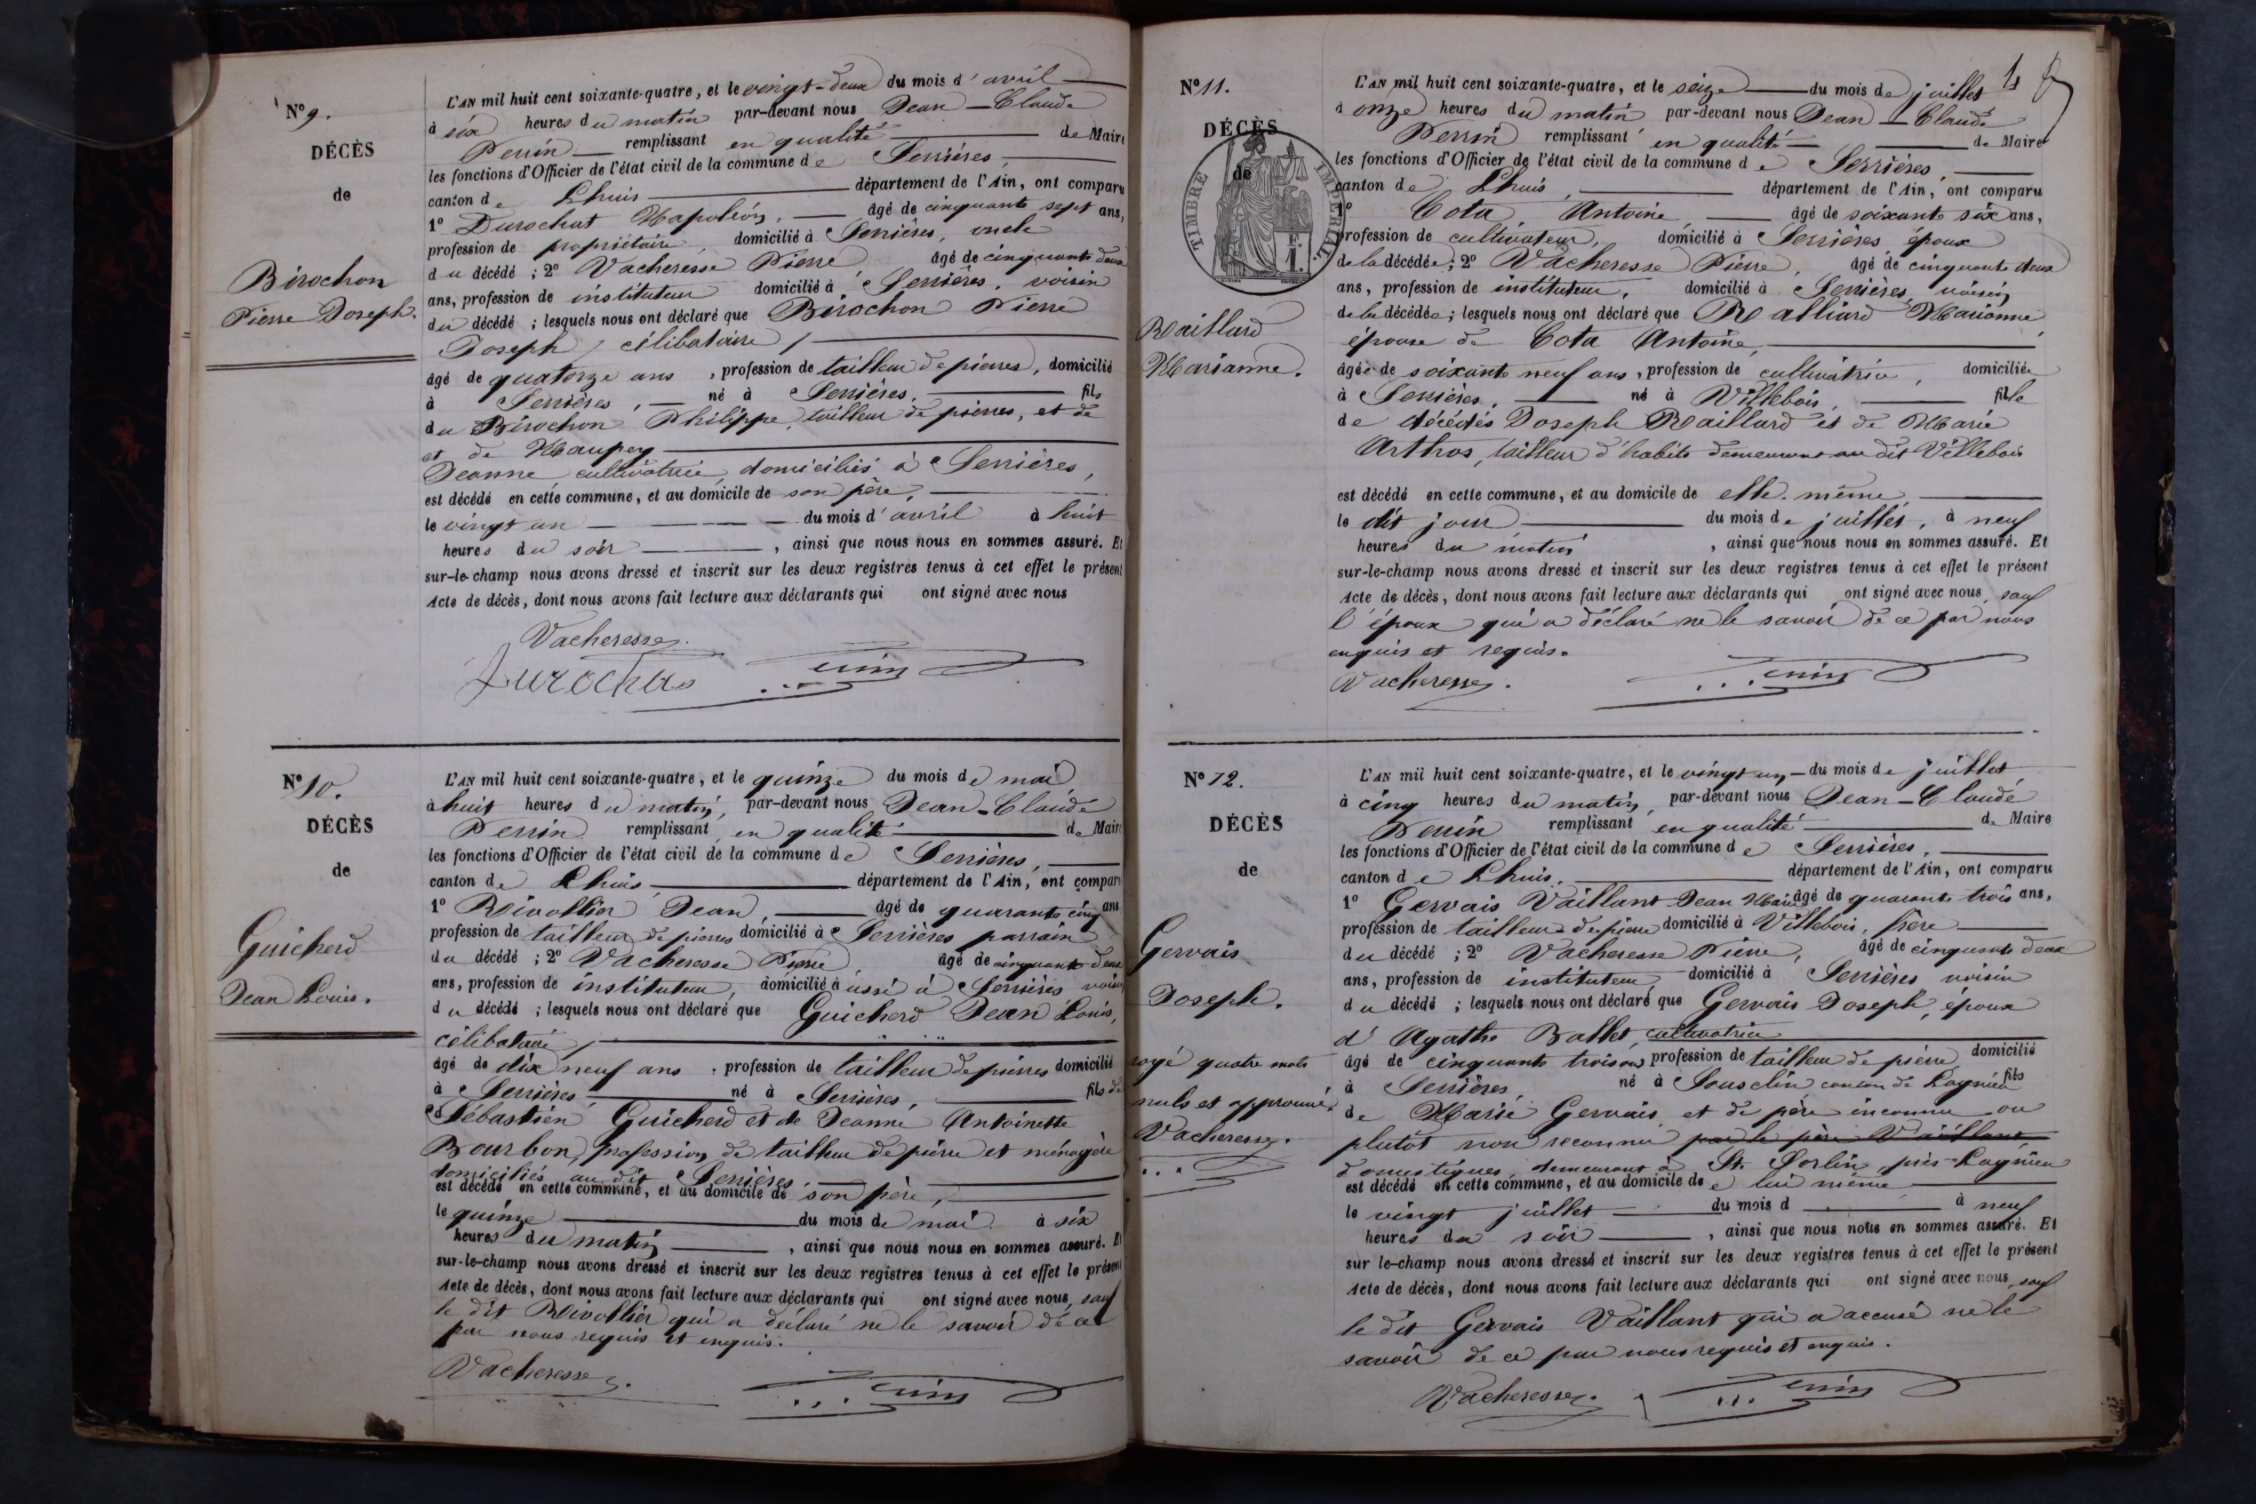 N° 9.
DÉCÈS
de
Birochon
Pierre Joseph.
L'AN mil huit cent soixante-quatre, et le vingt-deux du mois d'avril
à six heures du matin par-devant nous Jean-Claude
Perrin remplissant en qualité de Maire
les fonctions d'Officier de l'état civil de la commune de Serrières,
canton de Lhuis département de l'Ain, ont comparu
1° Durochat Napoléon, âgé de cinquante sept ans,
profession de propriétaire, domicilié à Serrières, oncle
du décédé ; 2° Vacheresse Pierre âgé de cinquante deux
ans, profession de instituteur domicilié à Serrières, voisin
du décédé ; lesquels nous ont déclaré que Birochon Pierre
Joseph, célibataire,
âgé de quatorze ans, profession de tailleur de pierres, domicilié
à Serrières, né à Serrières, fils
du Birochon Philippe, tailleur de pierres, et de
et de Maupey
Jeanne cultivatrice, domiciliés à Serrières,
est décédé en cette commune, et au domicile de son père,
le vingt un du mois d'avril à huit
heures du soir, ainsi que nous nous en sommes assuré. Et
sur-le-champ nous avons dressé et inscrit sur les deux registres tenus à cet effet le présent
Acte de décès, dont nous avons fait lecture aux déclarants qui ont signé avec nous
Vacheresse.
Durochat Perrin
N° 10.
DÉCÈS
de
Guicherd
Jean Louis.
L'AN mil huit cent soixante-quatre, et le quinze du mois de mai
à huit heures du matin, par-devant nous Jean-Claude
Perrin remplissant en qualité de Maire
les fonctions d'Officier de l'état civil de la commune de Serrières,
canton de Lhuis département de l'Ain, ont comparu
1° Rivollier Jean, âgé de quarante cinq ans
profession de tailleur de pierres domicilié à Serrières parrain
du décédé ; 2° Vacheresse Pierre âgé de cinquante deux
ans, profession de instituteur, domicilié à aussi à Serrières voisin
du décédé ; lesquels nous ont déclaré que Guicherd Jean Louis,
célibataire,
âgé de dix neuf ans, profession de tailleur de pierres domicilié
à Serrières né à Serrières, fils de
Sébastien Guicherd et de Jeanne Antoinette
Bourbon, profession de tailleur de pierre et ménagère
domiciliés au dit Serrières
est décédé en cette commune, et au domicile de son père,
le quinze du mois de mai à six
heures du matin, ainsi que nous nous en sommes assuré. Et
sur-le-champ nous avons dressé et inscrit sur les deux registres tenus à cet effet le présent
Acte de décès, dont nous avons fait lecture aux déclarants qui ont signé avec nous, sauf
le dit Rivollier qui a déclaré ne le savoir de ce
par nous requis et enquis.
Vacheresse. Perrin
N° 11.
DÉCÈS
de
TIMBRE IMPÉRIAL
F.
1.
Raillard
Marianne.
L'AN mil huit cent soixante-quatre, et le seize du mois de juillet
à onze heures du matin par-devant nous Jean-Claude
Perrin remplissant en qualité de Maire
les fonctions d'Officier de l'état civil de la commune de Serrières,
canton de Lhuis, département de l'Ain, ont comparu
1° Cota Antoine, âgé de soixante six ans,
profession de cultivateur, domicilié à Serrières époux
de la décédée ; 2° Vacheresse Pierre, âgé de cinquante deux
ans, profession de instituteur, domicilié à Serrières, voisin
de la décédée ; lesquels nous ont déclaré que Ralliard Marianne
épouse de Cota Antoine,
âgée de soixante neuf ans, profession de cultivatrice, domiciliée
à Serrières, né à Villebois, fille
de décédés Joseph Raillard et de Marie
Arthos, tailleur d'habits demeurant au dit Villebois
est décédé en cette commune, et au domicile de elle-même,
le dit jour du mois de juillet, à neuf
heures du matin, ainsi que nous nous en sommes assuré. Et
sur-le-champ nous avons dressé et inscrit sur les deux registres tenus à cet effet le présent
Acte de décès, dont nous avons fait lecture aux déclarants qui ont signé avec nous, sauf
l'époux qui a déclaré ne le savoir de ce par nous
enquis et requis.
Vacheresse. Perrin
N° 12.
DÉCÈS
de
Gervais
Joseph.
rayé quatre mots
nuls et approuvé.
Vacheresse.
L'AN mil huit cent soixante-quatre, et le vingt un du mois de juillet
à cinq heures du matin, par-devant nous Jean-Claude
Perrin remplissant en qualité de Maire
les fonctions d'Officier de l'état civil de la commune de Serrières,
canton de Lhuis, département de l'Ain, ont comparu
1° Gervais Vaillant Jean Marie âgé de quarante trois ans,
profession de tailleur de pierre domicilié à Villebois, frère
du décédé ; 2° Vacheresse Pierre, âgé de cinquante deux
ans, profession de instituteur domicilié à Serrières voisin
du décédé ; lesquels nous ont déclaré que Gervais Joseph, époux
d'Agathe Ballet, cultivatrice
âgé de cinquante trois ans profession de tailleur de pierre domicilié
à Serrières né à Sousclin canton de Lagnieu fils
de Marie Gervais et de père inconnu ou
plutôt non reconnu par le père Vaillant,
domestiques, demeurant à St. Sorlin près Lagnieu
est décédé en cette commune, et au domicile de lui même
le vingt juillet du mois d à neuf
heures du soir, ainsi que nous nous en sommes assuré. Et
sur le-champ nous avons dressé et inscrit sur les deux registres tenus à cet effet le présent
Acte de décès, dont nous avons fait lecture aux déclarants qui ont signé avec nous, sauf
le dit Gervais Vaillant qui a accusé ne le
savoir de ce par nous requis et enquis.
Vacheresse. Perrin